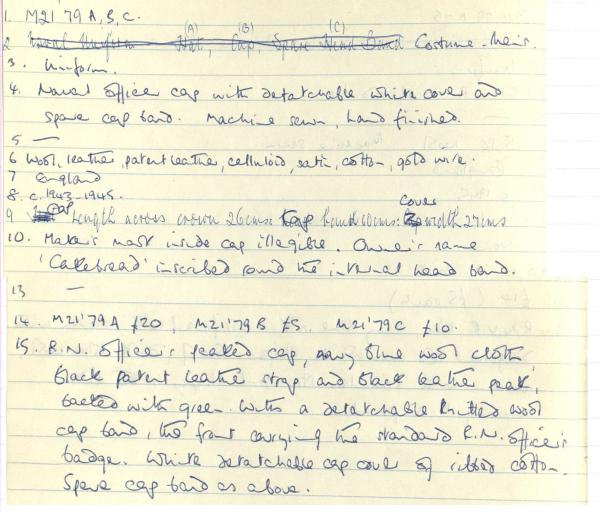 1. M21'79 A, B, C.
(A) (B) (C)
2 Naval Uniform Hat, Cap, Spare Head Band Costume - Men's.
3. Uniform.
4. Naval officer cap with detatchable white cover and
spare cap band. Machine sewn, hand finished.
5 —
6 Wool, leather, patent leather, celluloid, satin, cotton, gold wire.
7 England
8. c. 1943-1945.
9 Cap Length across crown 26cms: Cap band 10cms: Cover width 27cms
10. Maker's mark inside cap illegible. Owner's name
'Cakebread' inscribed round the internal head band.
13 —
14. M21'79A £20, M21'79B £5. M21'79C £10.
15. R.N. Officer's peaked cap, navy blue wool cloth,
black patent leather strap and black leather peak,
backed with green. With a detatchable knitted wool
cap band, the front carrying the standard R.N. officer's
badge. White detatchable cap cover of ribbed cotton.
Spare cap band as above.